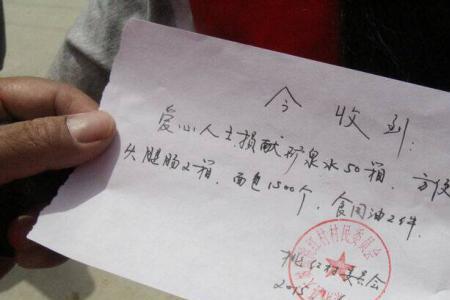 今收到:
爱心人士损献矿泉水50箱、方便
火腿肠2箱、面包1500个、食用油2件.
村民委员会
桃红村委员会